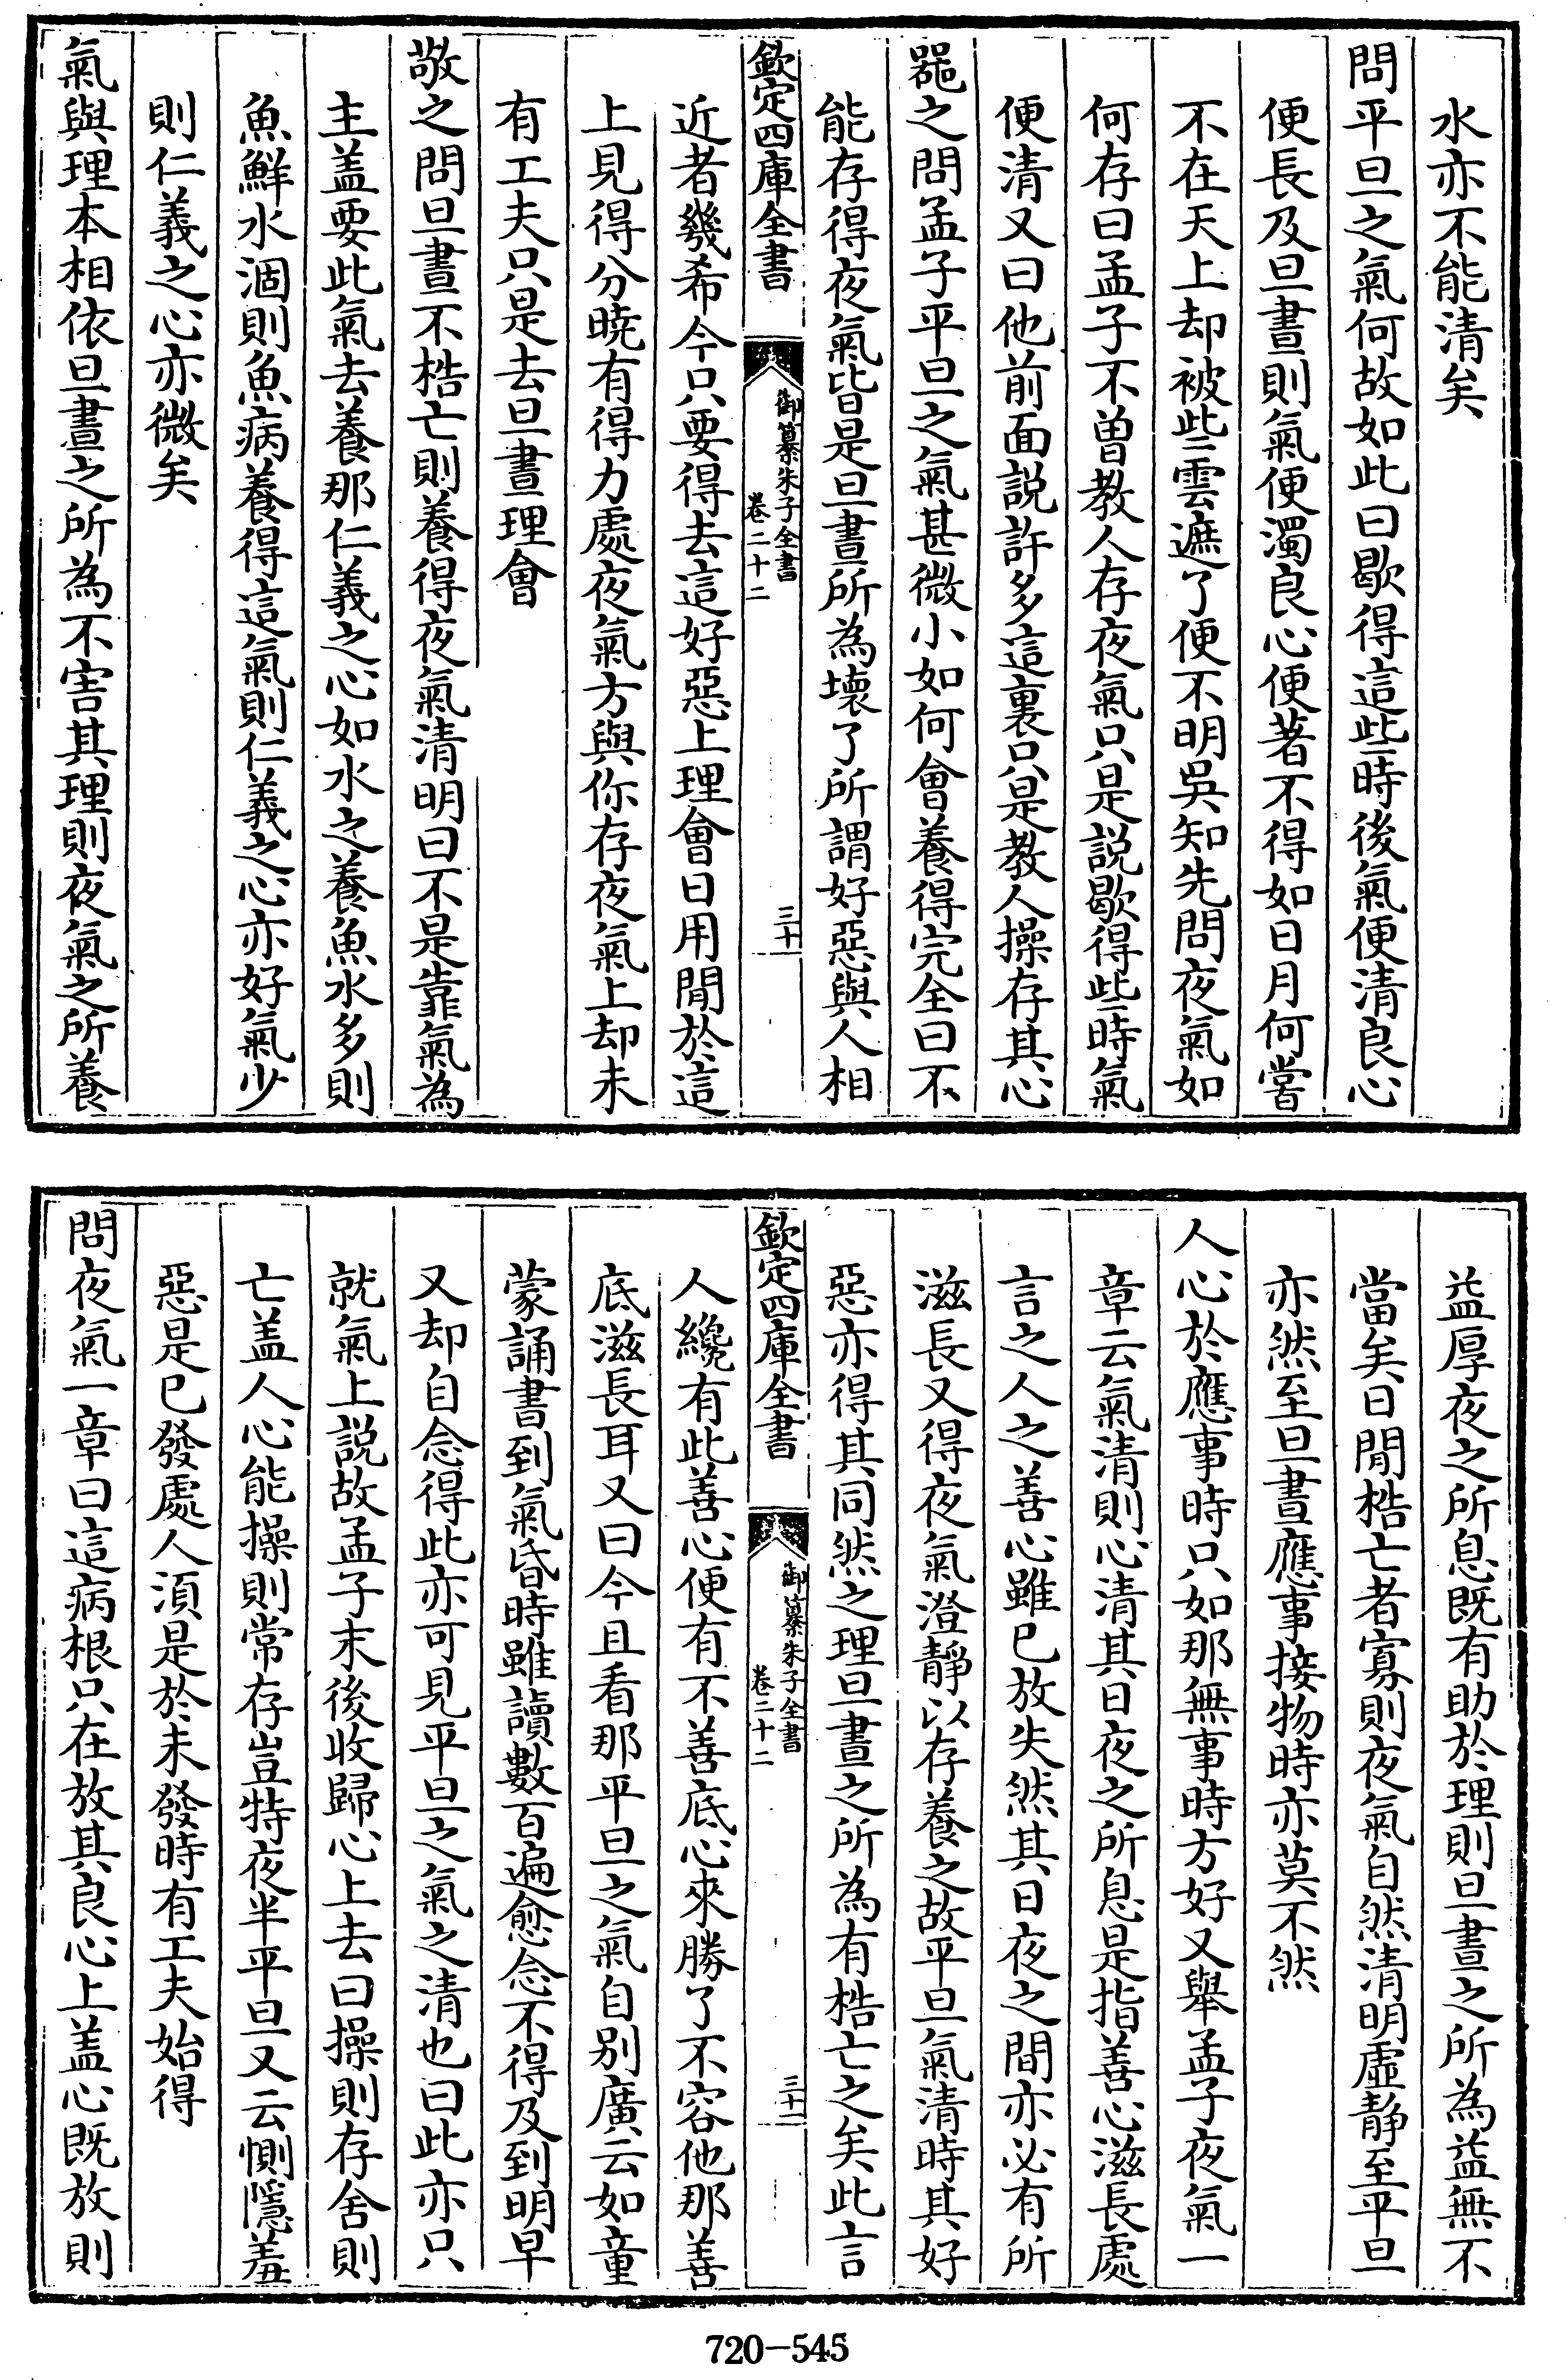 水亦不能清矣
問平旦之氣何故如此曰歇得這些時後氣便清良心
便長及旦晝則氣便濁良心便著不得如日月何嘗
不在天上却被些雲遮了便不明吳知先問夜氣如
何存曰孟子不曽教人存夜氣只是説歇得些時氣
便清又曰他前面説許多這裏只是教人操存其心
噐之問孟子平旦之氣甚微小如何會養得完全曰不
能存得夜氣皆是旦晝所為壞了所謂好惡與人相
欽定四庫全書
御纂朱子全書
卷二十二
三十
近者幾希今只要得去這好惡上理會日用間於這
上見得分曉有得力處夜氣方與你存夜氣上却未
有工夫只是去旦晝理會
敬之問旦晝不梏亡則養得夜氣清明曰不是靠氣為
主盖要此氣去養那仁義之心如水之養魚水多則
魚鮮水涸則魚病養得這氣則仁義之心亦好氣少
則仁義之心亦微矣
氣與理本相依旦晝之所為不害其理則夜氣之所養
益厚夜之所息既有助於理則旦晝之所為益無不
當矣日間梏亡者寡則夜氣自然清明虛靜至平旦
亦然至旦晝應事接物時亦莫不然
人心於應事時只如那無事時方好又舉孟子夜氣一
章云氣清則心清其日夜之所息是指善心滋長處
言之人之善心雖已放失然其日夜之間亦必有所
滋長又得夜氣澄靜以存養之故平旦氣清時其好
惡亦得其同然之理旦晝之所為有梏亡之矣此言
欽定四庫全書
御纂朱子全書
卷二十二
三十一
人纔有此善心便有不善底心來勝了不容他那善
底滋長耳又曰今且看那平旦之氣自别廣云如童
蒙誦書到氣昏時雖讀數百遍愈念不得及到明早
又却自念得此亦可見平旦之氣之清也曰此亦只
就氣上説故孟子末後收歸心上去曰操則存舍則
亡盖人心能操則常存豈特夜半平旦又云惻隱羞
惡是已發處人須是於未發時有工夫始得
問夜氣一章曰這病根只在放其良心上盖心既放則
720-545